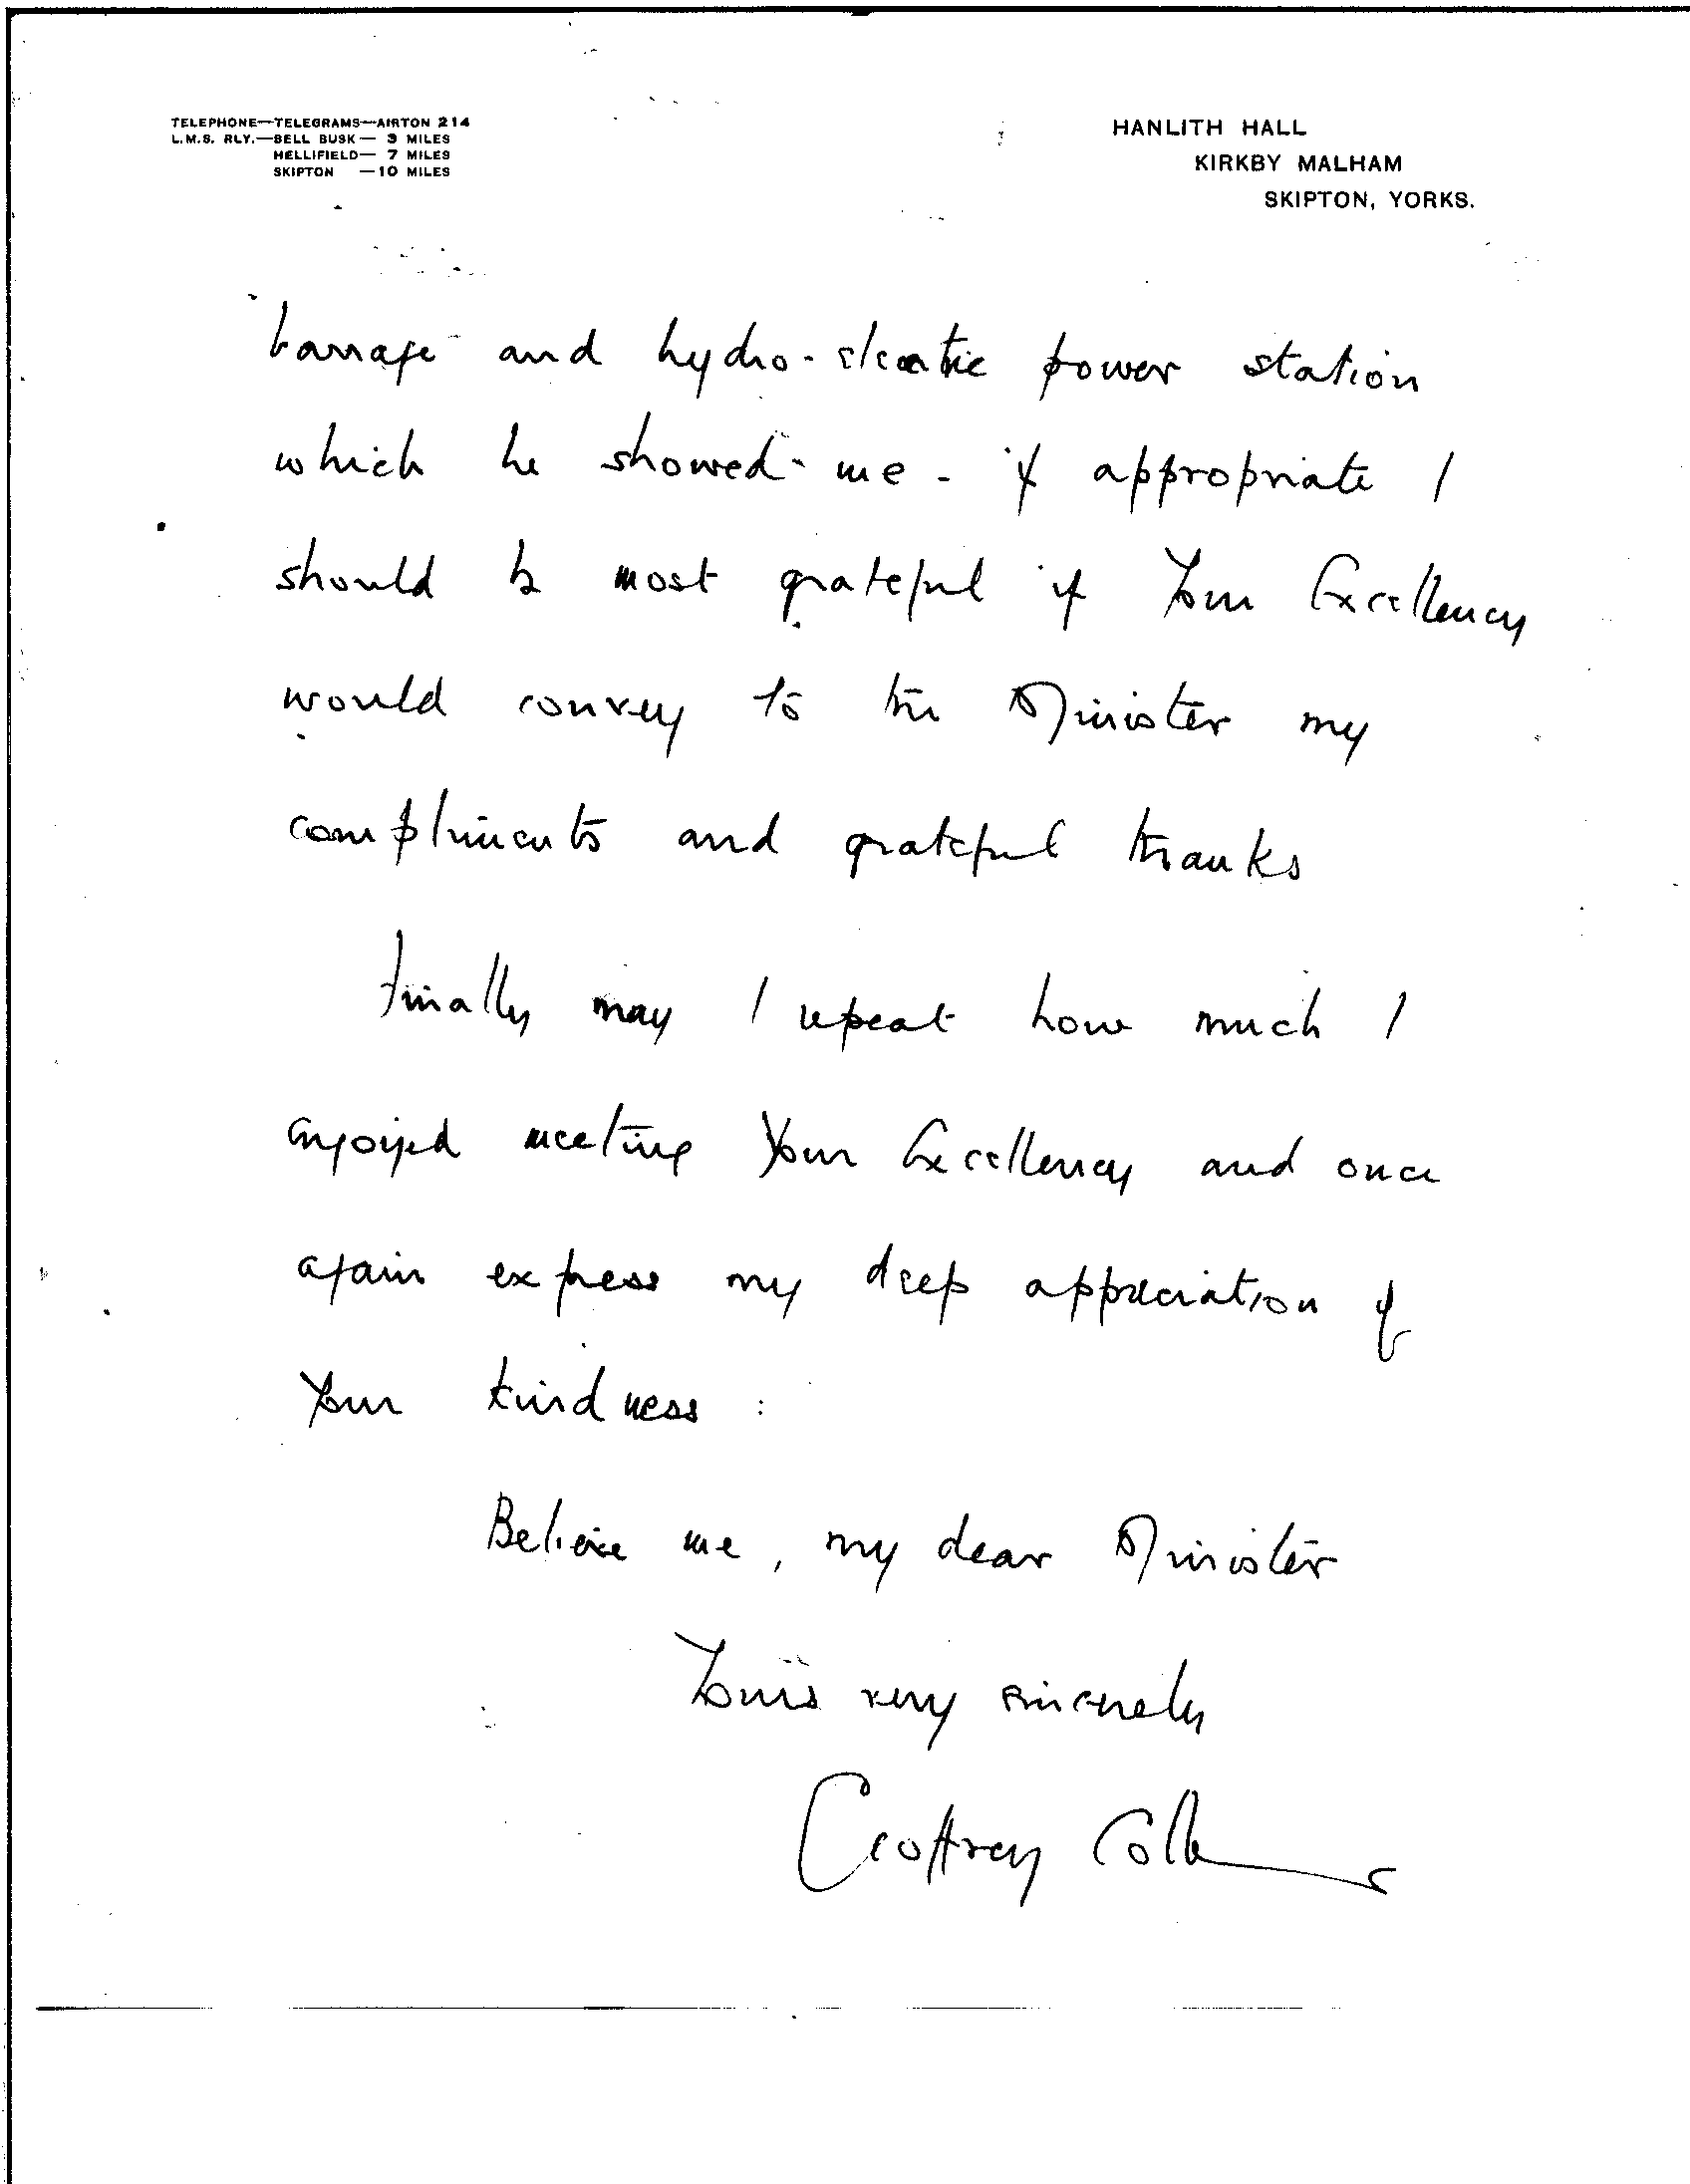 TELEPHONE—TELEGRAMS—AIRTON 214
L.M.S. RLY.—BELL BUSK — 3 MILES
HELLIFIELD— 7 MILES
SKIPTON —10 MILES
HANLITH HALL
KIRKBY MALHAM
SKIPTON, YORKS.
barrage and hydro-electric power station
which he showed me - if appropriate I
should be most grateful if Your Excellency
would convey to the Minister my
compliments and grateful thanks
Finally may I repeat how much I
enjoyed meeting Your Excellency and once
again express my deep appreciation of
Your kindness :
Believe me, my dear Minister
Yours very sincerely
Geoffrey